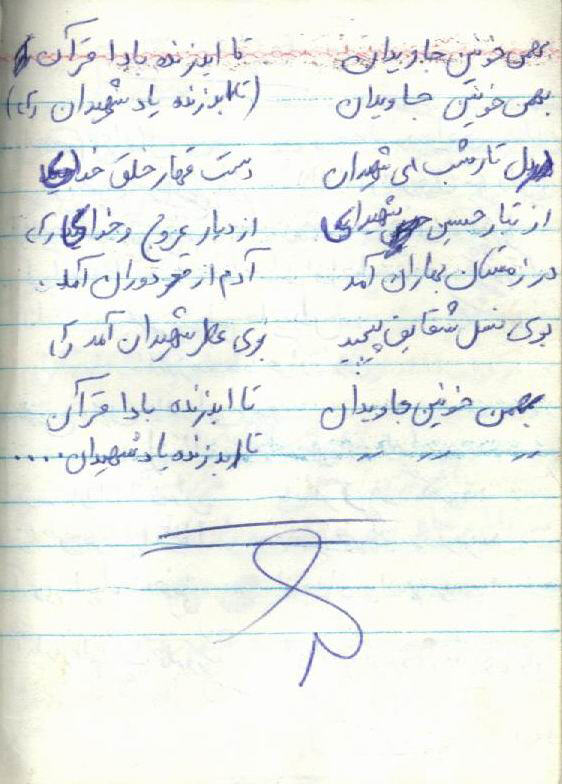 بهمن خونین جاویدان تا ابد زنده بادا قرآن
بهمن خونین جاویدان (تا ابد زنده یاد شهیدان
دل تار شب ای شهیدان دست قهار خلق خدا
از تبار حسین شهیدای از دیار عروج و خدای
در زمستان بهاران آمد آدم از دوران آمد.
بوی نسل شقایق پیچید بوی عطر شهیدان آمد
بهمن خونین جاویدان تا ابد زنده بادا قرآن
〃 〃 〃 تا ابد زنده یاد شهیدان....